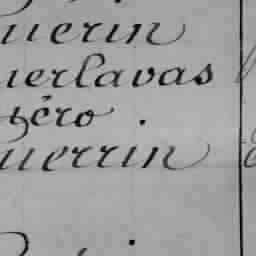 uerin
uerlavas
zéro .
uerrin